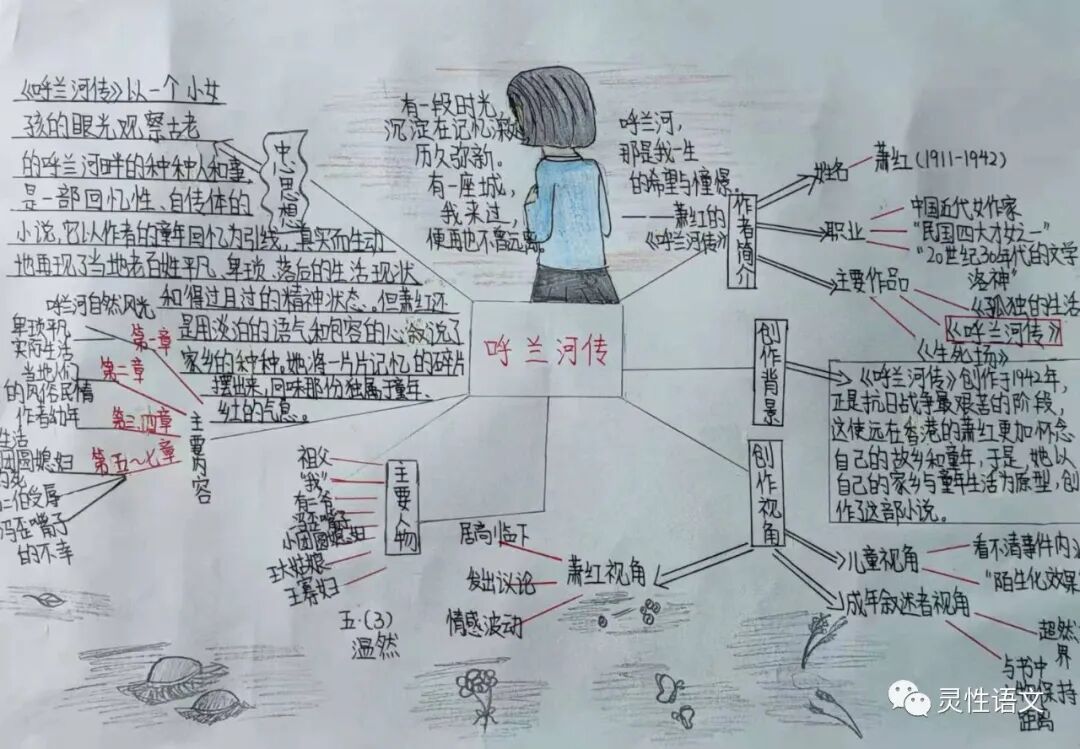 《呼兰河传》以一个小女
孩的眼光观察古老
的呼兰河畔的种种人和事
是一部回忆性、自传体的
小说,它以作者的童年回忆为引线,真实而生动
地再现了当地老百姓平凡、卑琐、落后的生活现状
和得过且过的精神状态。但萧红还
是用淡泊的语气和包容的心叙说了
家乡的种种,她将一片片记忆的碎片
摆出来,回味那份独属于童年、
乡土的气息。
中思想
有一段时光,
沉淀在记忆深
历久弥新。
有一座城,
我来过,
便再也不曾远离。
呼兰河,
那是我一生
的希望与憧憬。
——萧红的
《呼兰河传》
呼兰河传
作者简介
姓名
萧红(1911-1942)
职业
中国近代女作家
"民国四大才女之一"
"20世纪30年代的文学
洛神"
主要作品
《孤独的生活
《呼兰河传》
《生死场》
创作背景
《呼兰河传》创作于1942年,
正是抗日战争最艰苦的阶段,
这使远在香港的萧红更加怀念
自己的故乡和童年,于是,她以
自己的家乡与童年生活为原型,创
作了这部小说。
创作视角
儿童视角
看不清事件内
"陌生化效果
成年叙述者视角
超然
界
与书中
保持
距离
萧红视角
居高临下
发出议论
情感波动
主要人物
祖父
"我"
有二爷
冯歪嘴子
小团圆媳妇
王大姑娘
王寡妇
主要内容
第一章
呼兰河自然风光
第二章
卑琐平凡
实的生活
当地人们
的风俗民情
第三、四章
作者幼年
生活
第五~七章
团圆媳妇
二伯受辱
冯歪嘴子
的不幸
五·(3)
温然
灵性语文